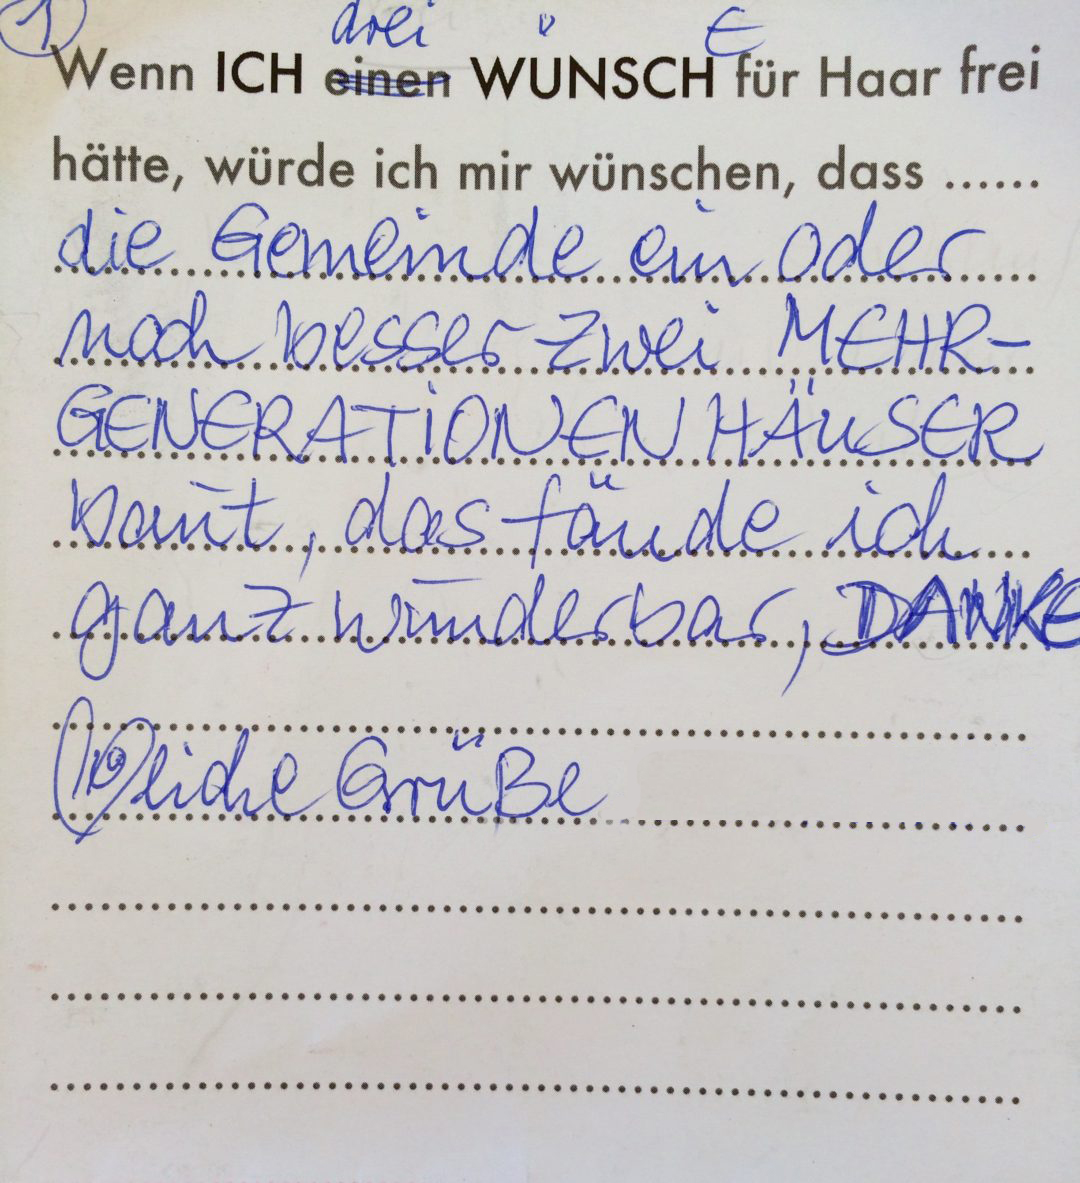 1 drei E
Wenn ICH einen WÜNSCH für Haar frei
hätte, würde ich mir wünschen, dass ......
die Gemeinde ein oder
noch besser zwei MEHR-
GENERATIONEN HÄUSER
baut, das fände ich
ganz wunderbar, DANKE
liche Grüße